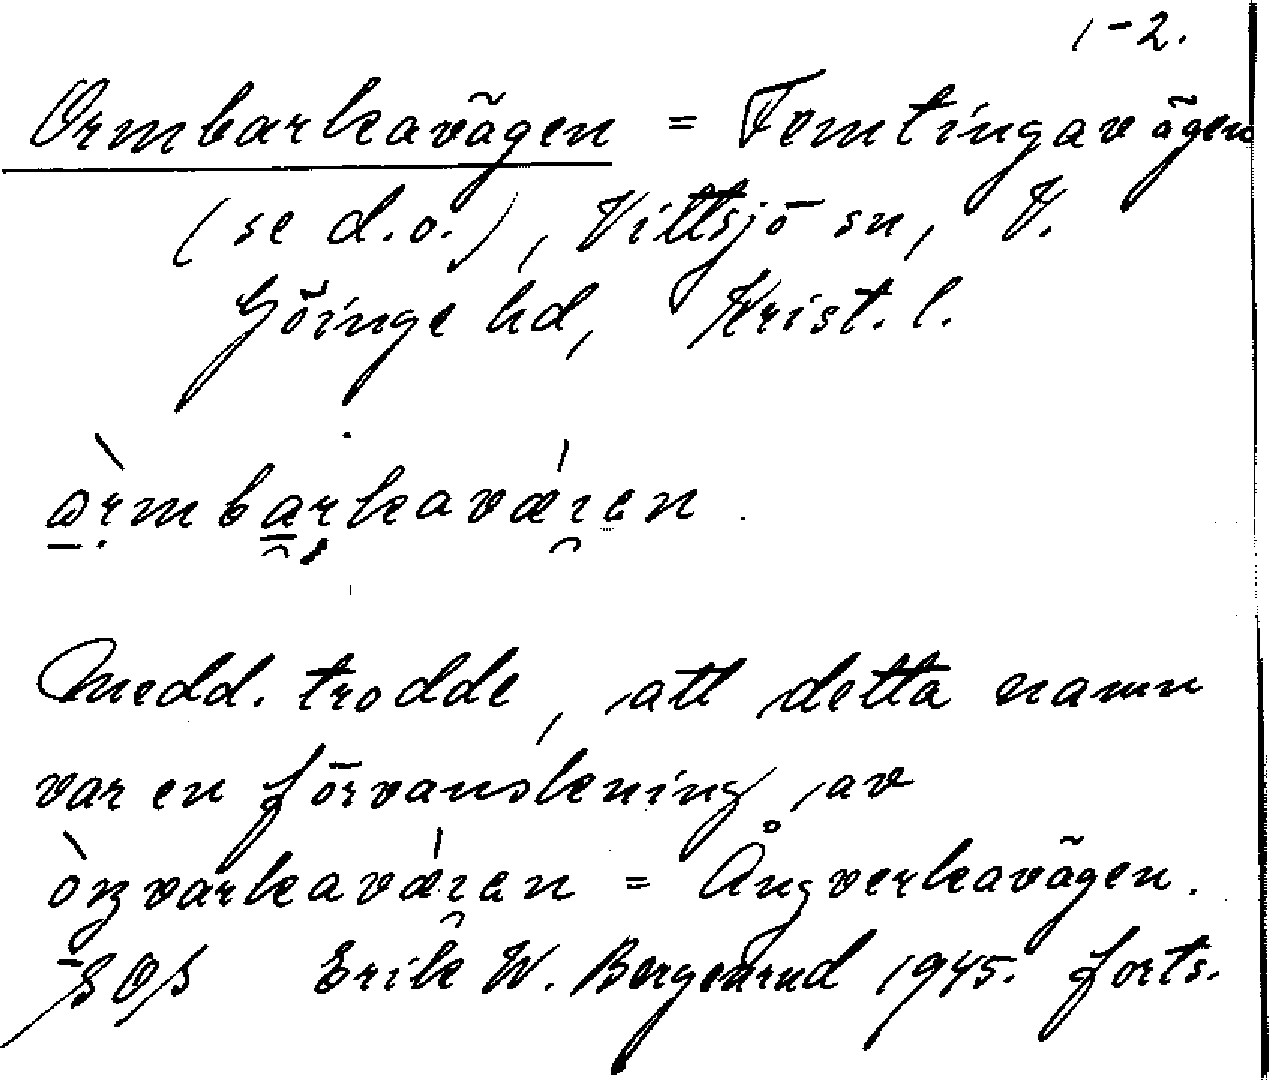 1-2.
Ormbarkavägen = Femtingavägen
(se d.o.), Vittsjö sn, V.
Göinge hd, Krist. l.
ɷ̀rmbarkavǽɪen.
Medd. trodde, att detta namn
var en förvanskning av
òŋvarkavǽɪen = Ångverkavägen.
SOS Erik W. Bergenrud 1945. forts.